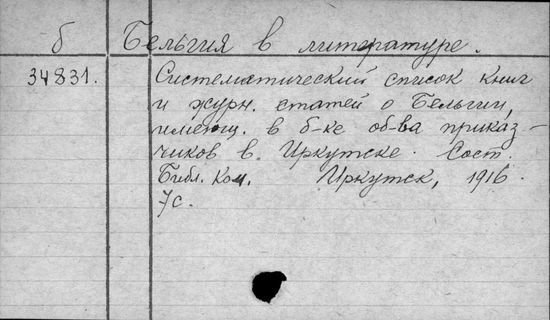 б Бельгия в литературе.
34831. Систематический список книг
и журн. статей о Бельгии,
имеющ. в б-ке об-ва приказ-
чиков в Иркутске. Сост.
Библ. Ком. Иркутск, 1916.
7с.